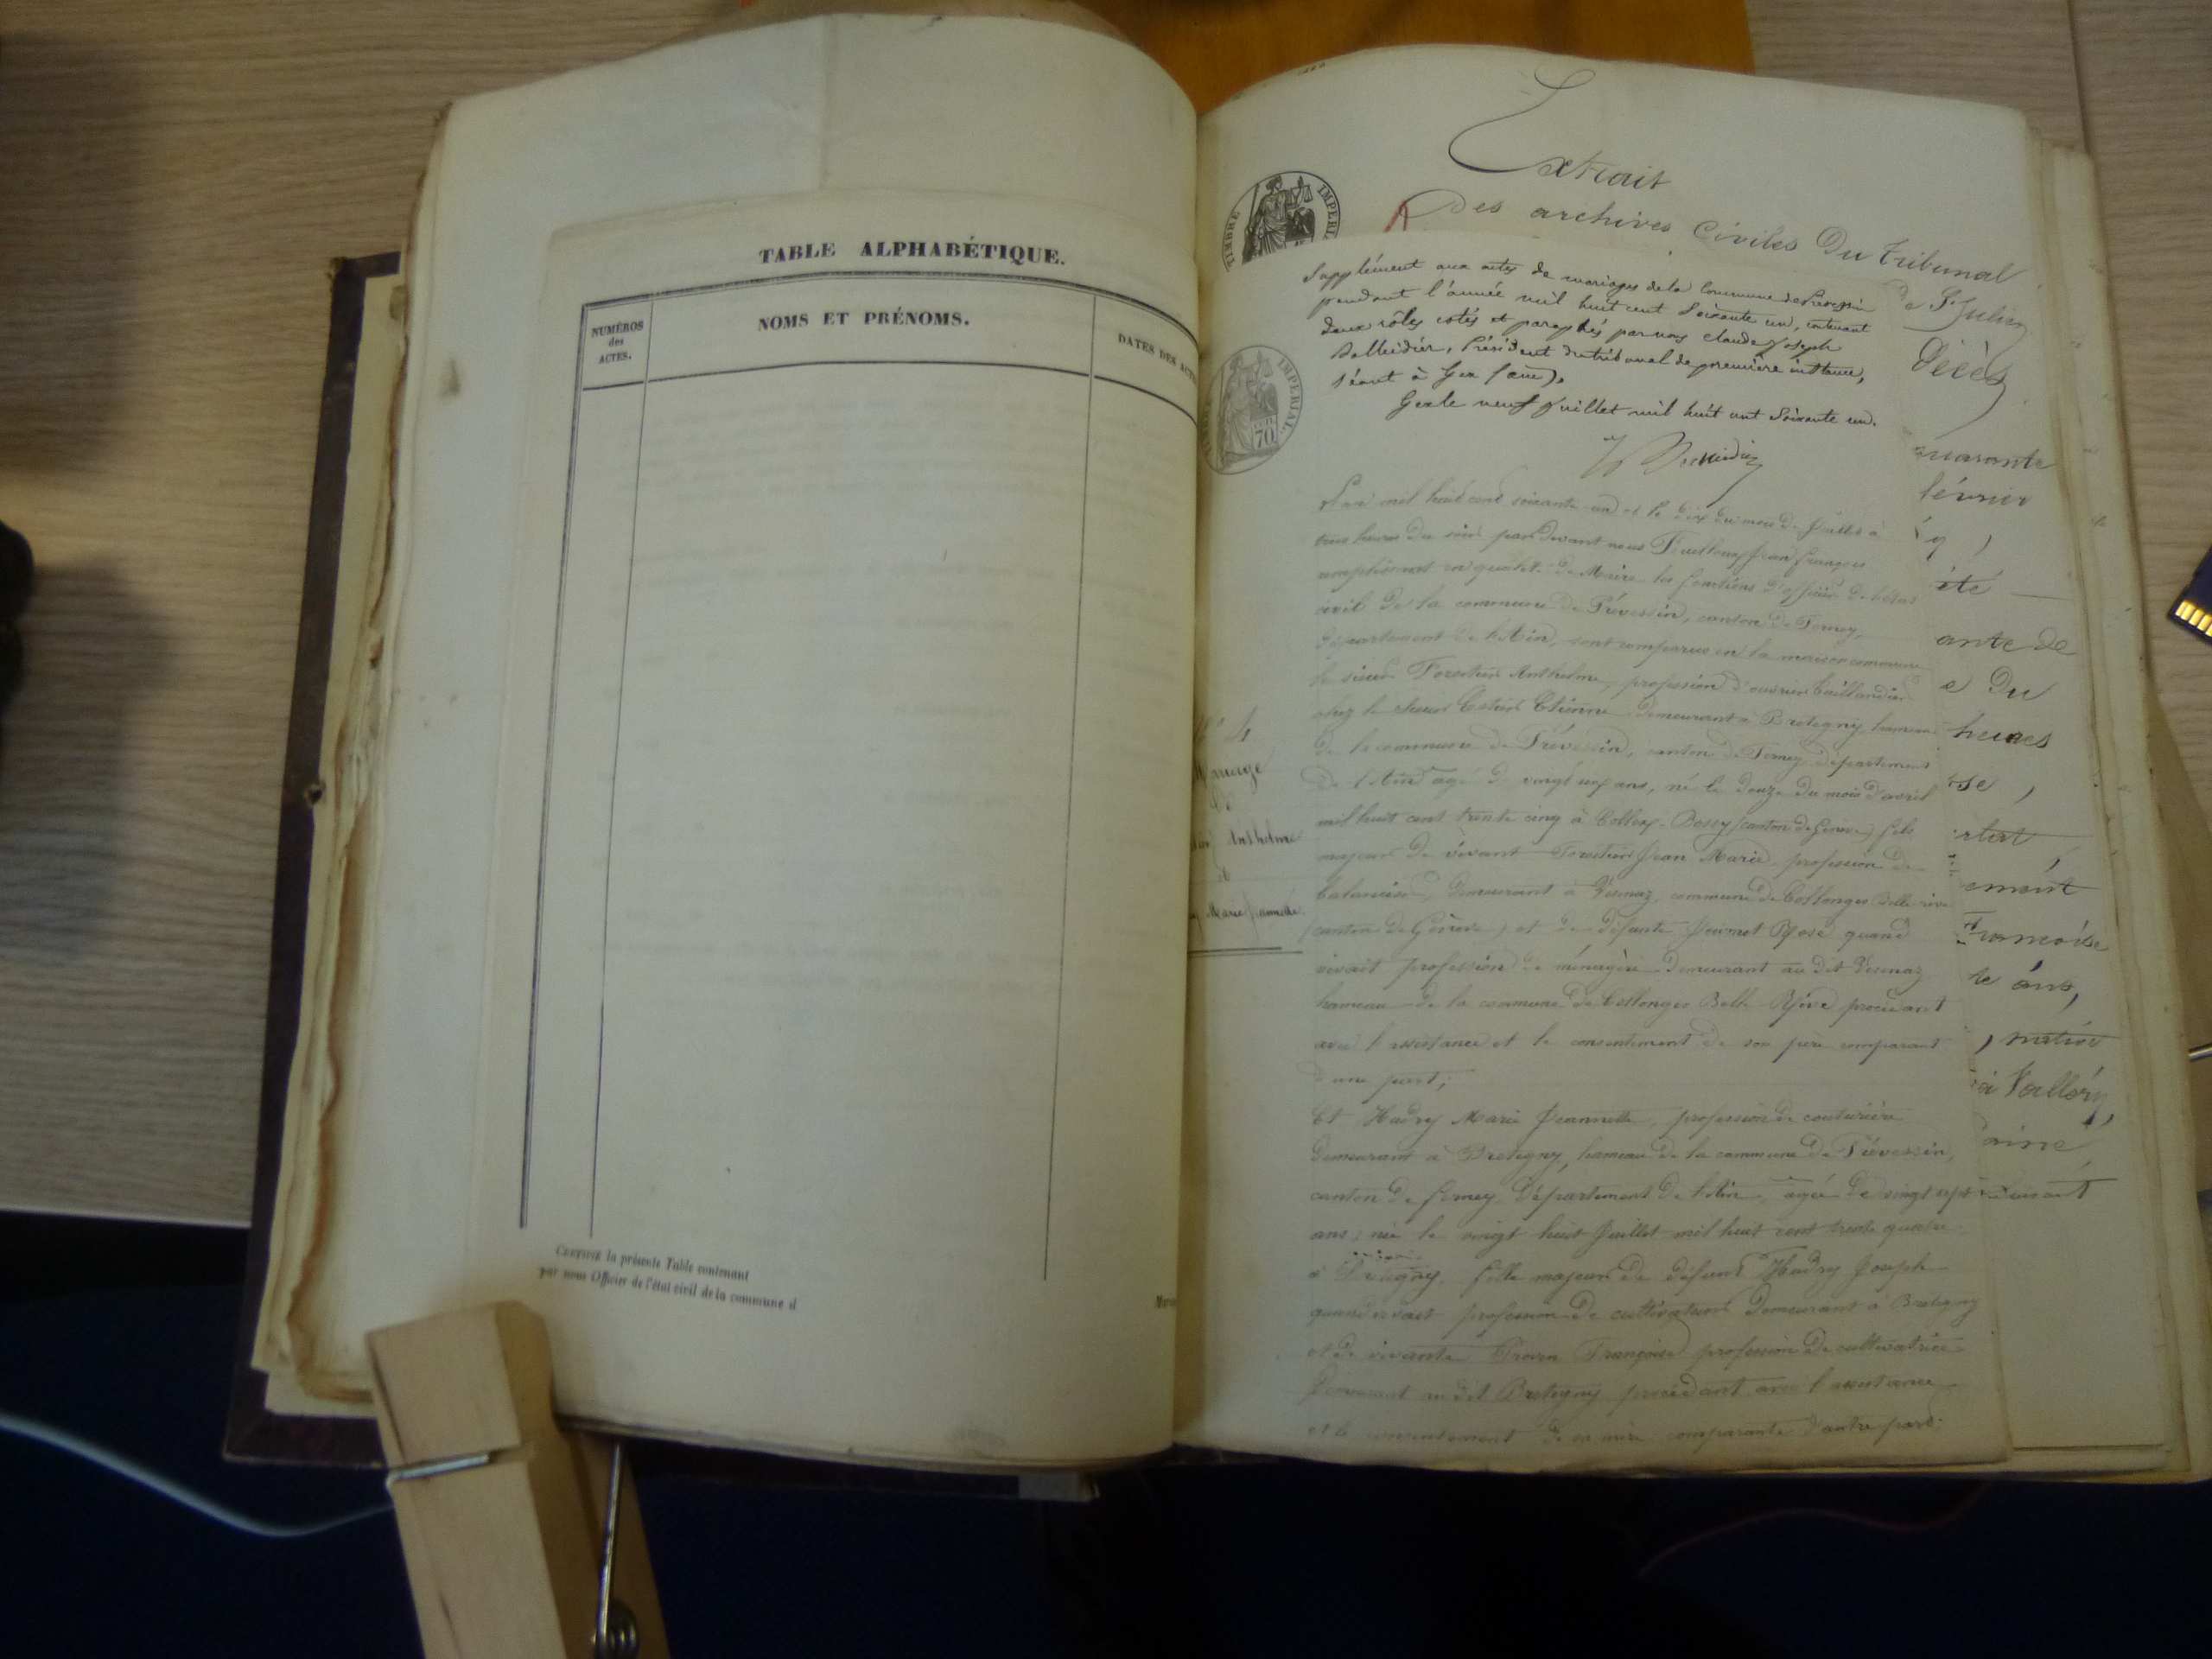 TABLE ALPHABÉTIQUE.
NUMÉROS
des
ACTES.
NOMS ET PRÉNOMS.
DATES DES ACT
CERTIFIÉE la présente Table contenant
par nous Officier de l'état civil de la commune d
Extrait
Des archives Civiles Du tribunal
de St Julien
Décès
TIMBRE IMPERIAL
Supplément aux actes de mariages de la Commune de Prevessin
pendant l'année mil huit cent soixante un, contenant
deux rôles cotés et paraphés par nous Claude Joseph
Président du tribunal de première instance,
séant à Gex (ain).
Gex le neuf Juillet mil huit cent soixante un.
TIMBRE IMPERIAL
70
L'an mil huit cent soixante un et le dix du mois de Juillet à
trois heures du soir par devant nous Jean François
remplissant en qualité de Maire les fonctions d'officier de l'état
civil de la commune de Prévessin, canton de Ferney,
département de l'Ain, sont comparus en la maison commune
le sieur Forestier Anthelme, profession d'ouvrier taillandier
chez le sieur Etienne demeurant à Bretegny hameau
de la commune de Prévessin, canton de Ferney département
de l'Ain agé de vingt six ans, né le douze du mois d'avril
mil huit cent trente cinq à Collex-Bossy (canton de Genève) fils
majeur de vivant Forestier Jean Marie profession de
demeurant à Vésenaz, commune de Collonges Belle rive
(canton de Genève) et de défunte Rose quand
vivait profession de ménagère demeurant au dit Vésenaz
hameau de la commune de Collonges Belle Rive procédant
avec l'assistance et le consentement de son père comparant
d'une part;
Et Hadry Marie Jeannette, profession de couturière
demeurant à Bretegny, hameau de la commune de Prévessin,
canton de Ferney, Département de l'Ain, agée de vingt sept
ans, née le vingt huit Juillet mil huit cent trente quatre
à Bretegny, fille majeure de défunt Hadry Joseph
quand vivait profession de cultivateur demeurant à Bretegny
et de vivante Françoise profession de cultivatrice
demeurant au dit Bretegny procédant avec l'assistance
et le consentement de sa mère comparante d'autre part.
N° 4
Mariage
de
Anthelme
et
Marie Jeannette
quarante
février
y,
été
ante de
e Du
heures
se,
ement
Françoise
te ans,
, native